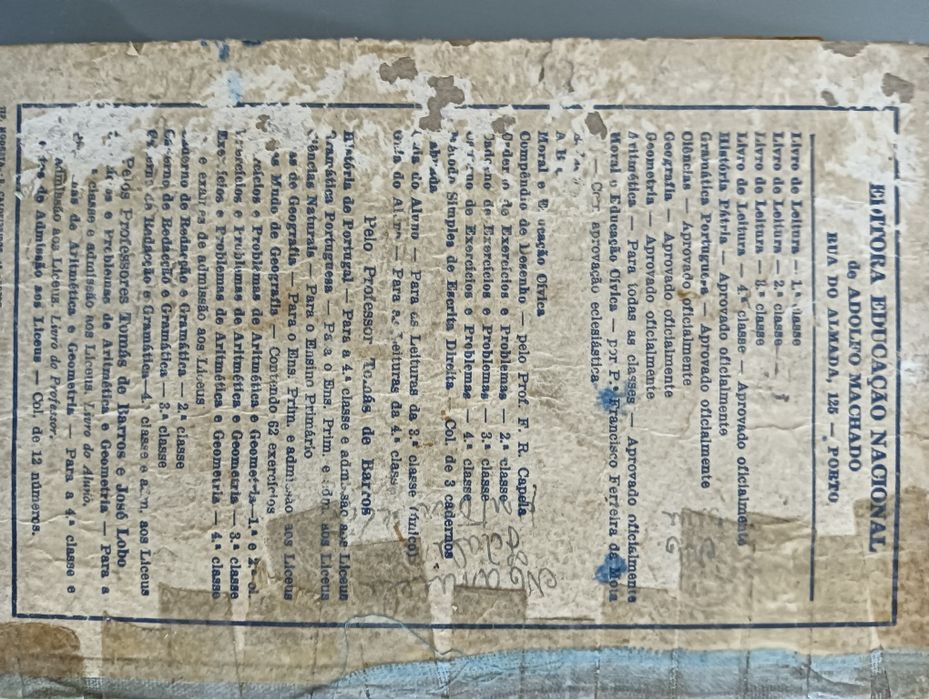 EDITORA EDUCAÇÃO NACIONAL
de ADOLFO MACHADO
RUA DO ALMADA, 125 — PORTO
Livro de Leitura — 1.ª classe
Livro de Leitura — 2.ª classe
Livro de Leitura — 3.ª classe
Livro de Leitura — 4.ª classe — Aprovado oficialmente
História Pátria — Aprovado oficialmente
Gramática Portuguesa — Aprovado oficialmente
Ciências — Aprovado oficialmente
Geografia — Aprovado oficialmente
Geometria — Aprovado oficialmente
Aritmética — Para todas as classes — Aprovado oficialmente
Moral e Educação Cívica — por P.e Francisco Ferreira da Mota
— Com aprovação eclesiástica
Moral e Educação Cívica
Compêndio de Desenho — pelo Prof. F. R. Capela
Caderno de Exercícios e Problemas — 2.ª classe
Caderno de Exercícios e Problemas — 3.ª classe
Caderno de Exercícios e Problemas — 4.ª classe
Método Simples de Escrita Direita — Col. de 3 cadernos
Guia do Aluno — Para as Leituras da 3.ª classe (único)
Guia do Aluno — Para as Leituras da 4.ª classe
Pelo Professor Tomás de Barros
História de Portugal — Para a 4.ª classe e admissão aos Liceus
Gramática Portuguesa — Para o Ens. Prim. e adm. aos Liceus
Ciências Naturais — Para o Ensino Primário
de Geografia — Para o Ens. Prim. e admissão aos Liceus
Mudo de Geografia — Contendo 62 exercícios
Exercícios e Problemas de Aritmética e Geometria — 1.ª e 2.ª cl.
Exercícios e Problemas de Aritmética e Geometria — 3.ª classe
Exercícios e Problemas de Aritmética e Geometria — 4.ª classe
e exames de admissão aos Liceus
Caderno de Redacção e Gramática — 2.ª classe
Caderno de Redacção e Gramática — 3.ª classe
Caderno de Redacção e Gramática — 4.ª classe e adm. aos Liceus
Pelos Professores Tomás de Barros e José Lobo
e Problemas de Aritmética e Geometria — Para a
classe e admissão aos Liceus. Livro do Aluno
de Aritmética e Geometria — Para a 4.ª classe e
admissão aos Liceus. Livro do Professor.
de Admissão aos Liceus — Col. de 12 números.